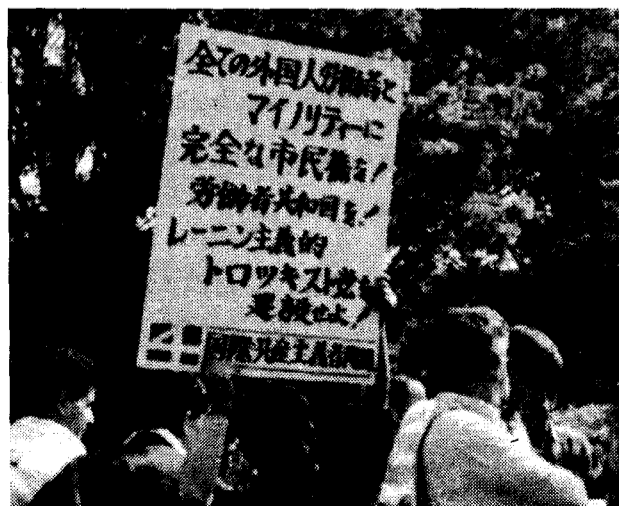 全ての外国人労働者と
マイノリティーに
完全な市民権を!
労働者共和国を!
レーニン主義的
トロツキスト党を
建設せよ!
国際共産主義者